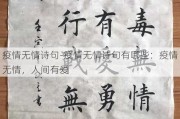 毒無情勇
行有愛無
疫情无情诗句-疫情无情诗句有哪些：疫情
无情，人间有爱